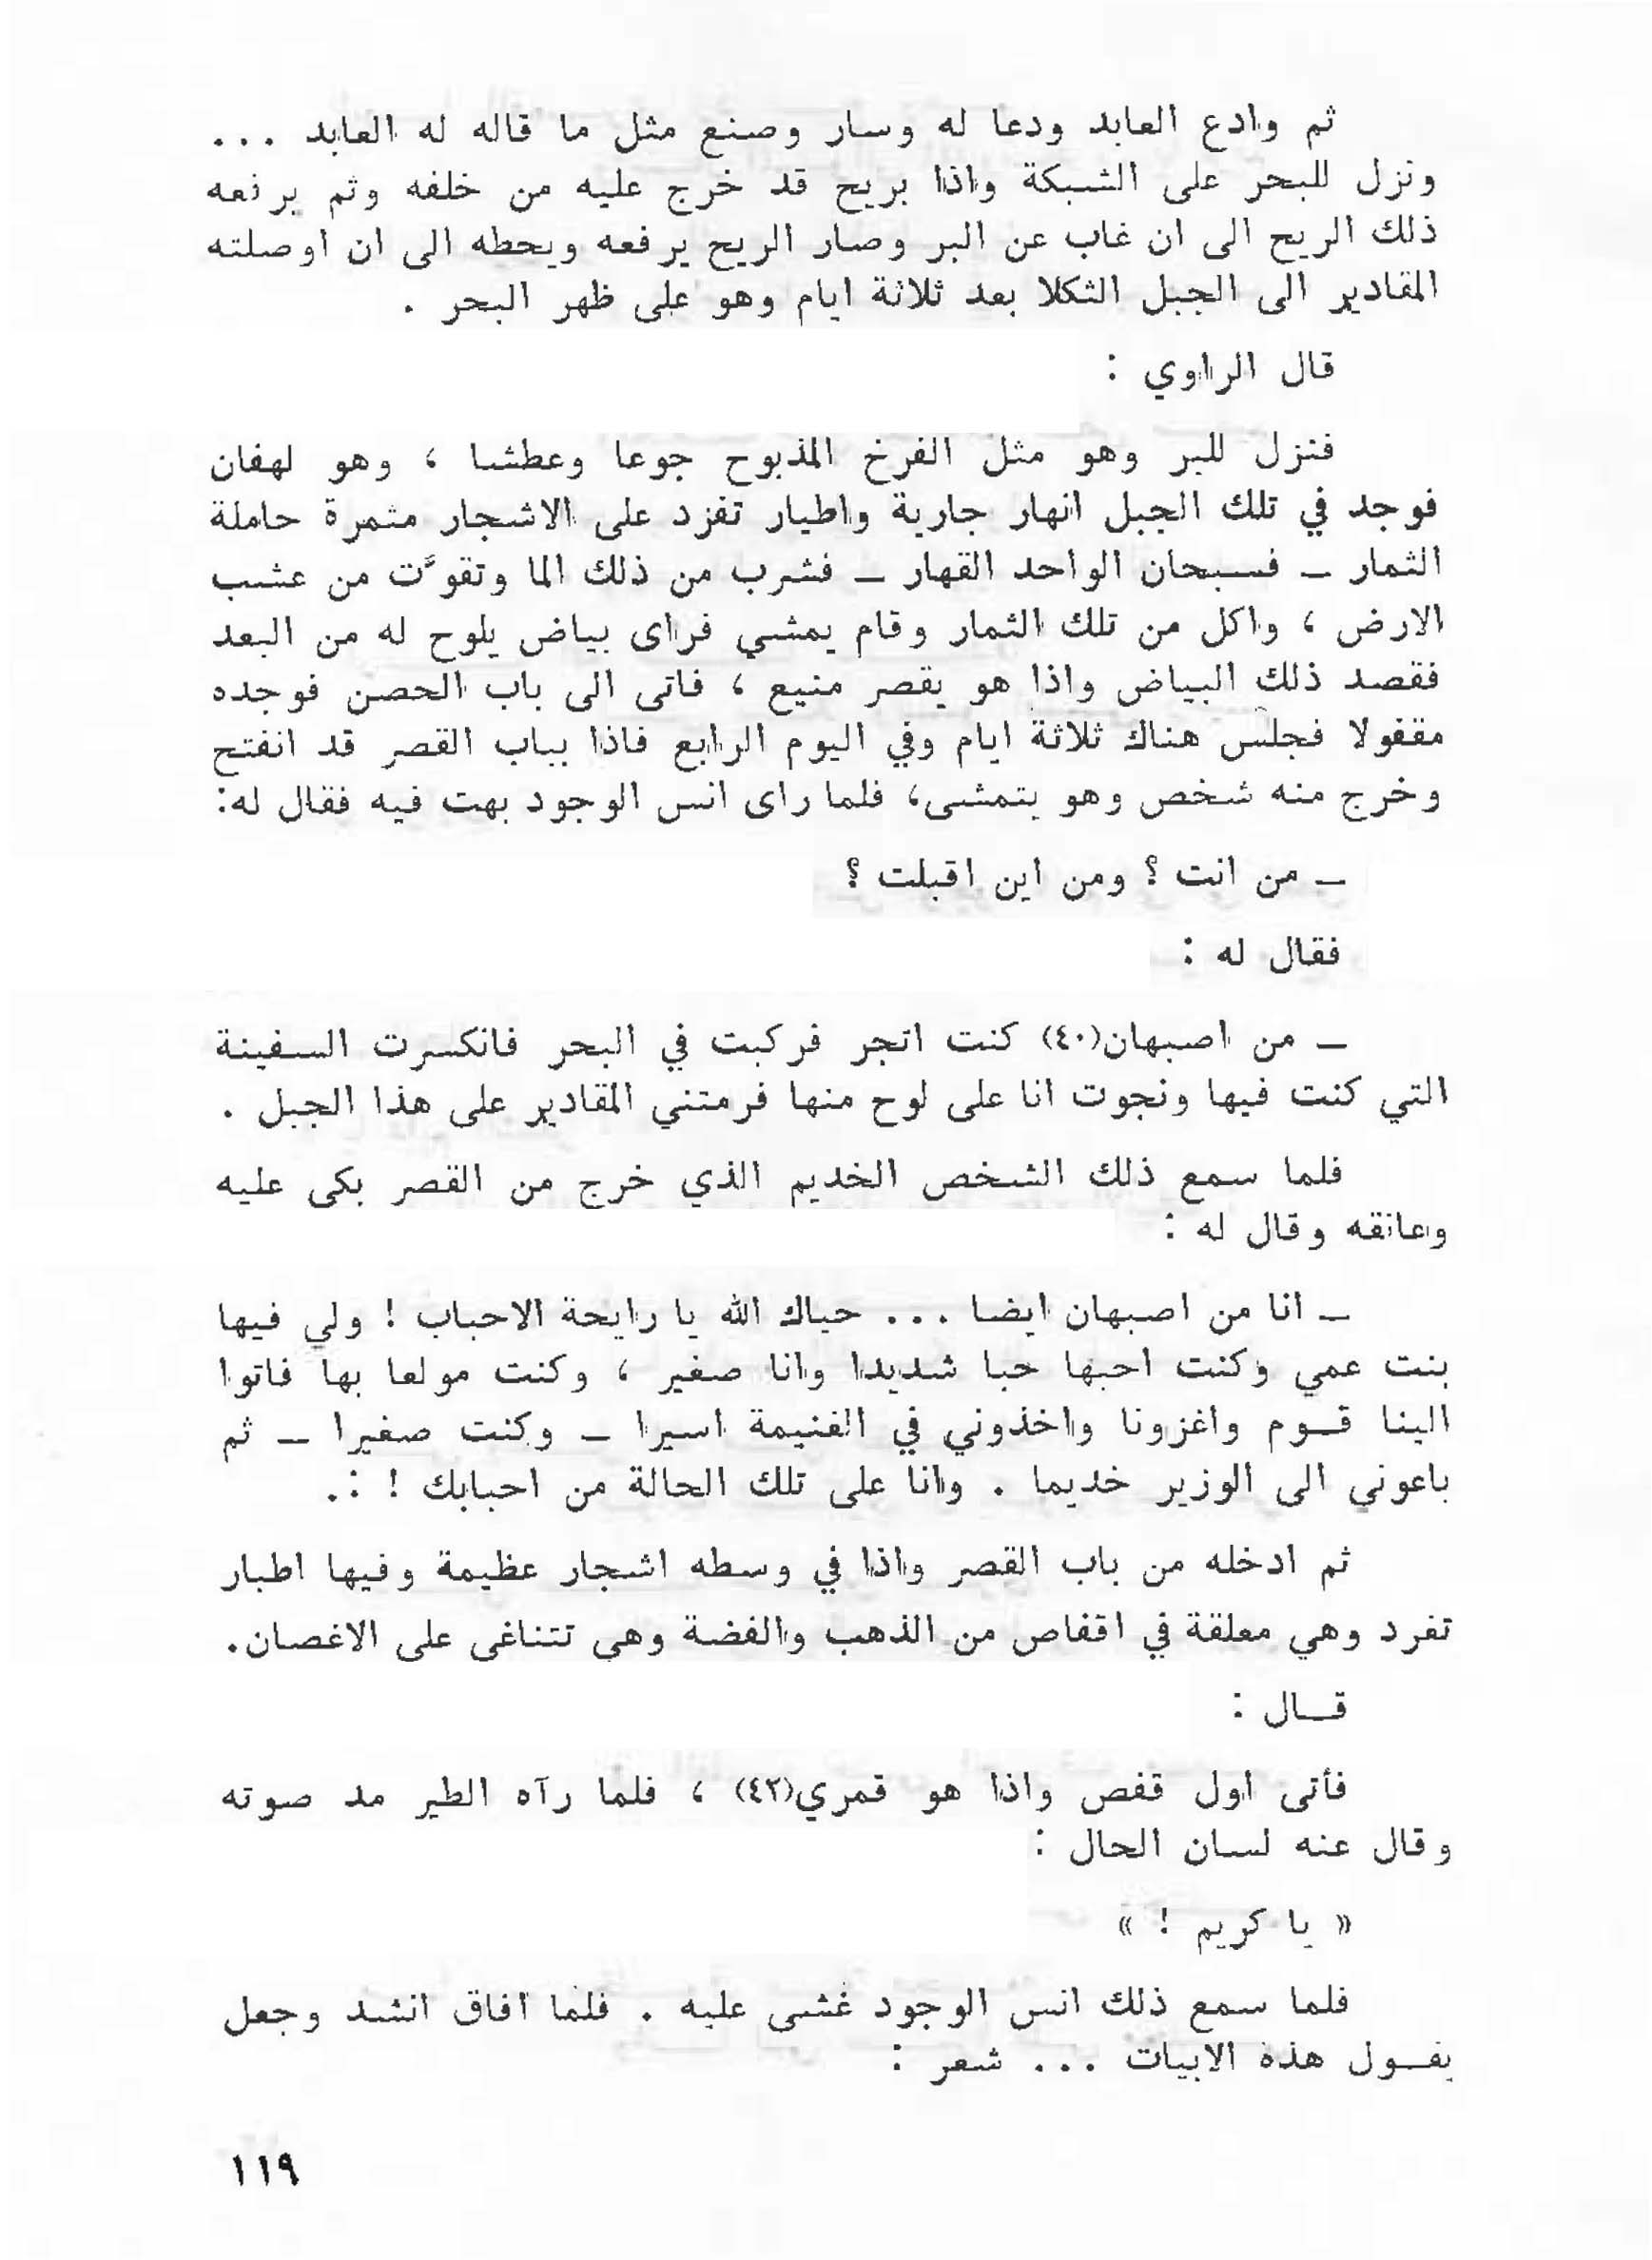 ثم وادع العابد ودعا له وسار وصنع مثل ما قاله له العابد ...
ونزل للبحر على الشبكة واذا بريح قد خرج عليه من خلفه وثم يرفعه
ذلك الريح الى ان غاب عن البر وصار الريح يرفعه ويحطه الى ان اوصلته
المقادير الى الجبل الثكلا بعد ثلاثة ايام وهو على ظهر البحر .
قال الراوي :
فنزل للبر وهو مثل الفرخ المذبوح جوعا وعطشا ، وهو لهفان
فوجد في تلك الجبل انهار جارية واطيار تغرد على الاشجار مثمرة حاملة
الثمار ــ فسبحان الواحد القهار ــ فشرب من ذلك الما وتقوَّت من عشب
الارض ، واكل من تلك الثمار وقام يمشي فراى بياض يلوح له من البعد
فقصد ذلك البياض واذا هو بقصر منيع ، فاتى الى باب الحصن فوجده
مقفولا فجلس هناك ثلاثة ايام وفي اليوم الرابع فاذا بباب القصر قد انفتح
وخرج منه شخص وهو يتمشى، فلما راى انس الوجود بهت فيه فقال له:
ــ من انت ؟ ومن اين اقبلت ؟
فقال له :
ــ من اصبهان(٤٠) كنت اتجر فركبت في البحر فانكسرت السفينة
التي كنت فيها ونجوت انا على لوح منها فرمتني المقادير على هذا الجبل .
فلما سمع ذلك الشخص الخديم الذي خرج من القصر بكى عليه
وعانقه وقال له :
ــ انا من اصبهان ايضا ... حياك الله يا رايحة الاحباب ! ولي فيها
بنت عمي وكنت احبها حبا شديدا وانا صغير ، وكنت مولعا بها فاتوا
الينا قــوم واغزونا واخذوني في الغنيمة اسيرا ــ وكنت صغيرا ــ ثم
باعوني الى الوزير خديما . وانا على تلك الحالة من احبابك ! :.
ثم ادخله من باب القصر واذا في وسطه اشجار عظيمة وفيها اطيار
تغرد وهي معلقة في اقفاص من الذهب والفضة وهي تتناغى على الاغصان.
قــال :
فأتى اول قفص واذا هو قمري(٤٢) ، فلما رآه الطير مد صوته
وقال عنه لسان الحال :
« يا كريم ! »
فلما سمع ذلك انس الوجود غشى عليه . فلما افاق انشد وجعل
يقــول هذه الابيات ... شعر :
١١٩